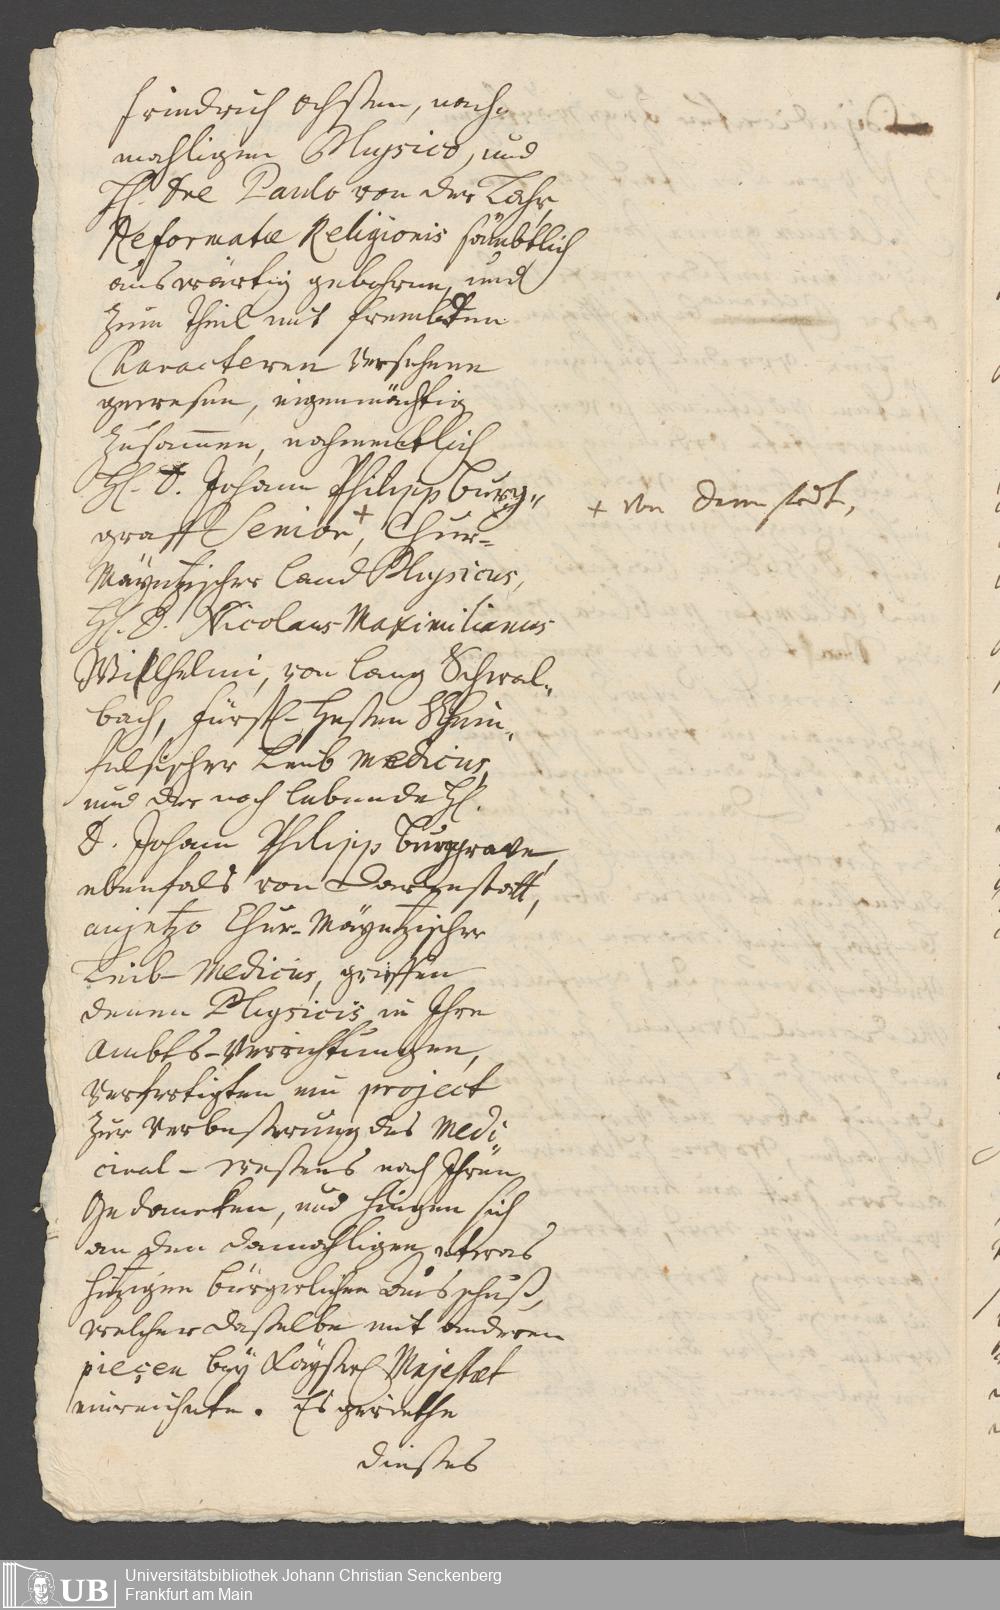 Friedrich Ochsen, nach-
mahligen Physico, und
H. Dre Paulo von der Lahr,
Reformatæ Religionis sämbtlich
auswärtig gebohrne, und
zum Theil mit frembden
Characteren versehene
gewesen, eigenmächtig
zusammen, nahmentlich
H. D. Johann Philipp Burg-
graff Senior, + Chur-
Mäyntzischer Land Physicus,
H. D. Nicolaus Maximilianus
Willhelmi, von Lang Schwal-
bach, Fürstl. Hessen Rhein-
felsischer Leib Medicus,
und der noch lebende H.
D. Johann Philipp Burggrave,
ebenfals von Darmstatt,
anjetzo Chur-Mäyntzischer
Leib-Medicus, grieffen
denen Physicis in Ihre
Ambts-Verrichtungen,
verfertigten ein project
zur Verbesserung des Medi-
cinal-Wesens nach Ihren
Gedancken, und hingen sich
an den damahligen etwas
hitzigen bürgerlichen Ausschuß,
welcher dasselbe mit anderen
pieçen bey Kayserl. Majestæt
einreichete. Es geriethe
dieses
+ von Darmstadt,
Universitätsbibliothek Johann Christian Senckenberg
Frankfurt am Main
UB